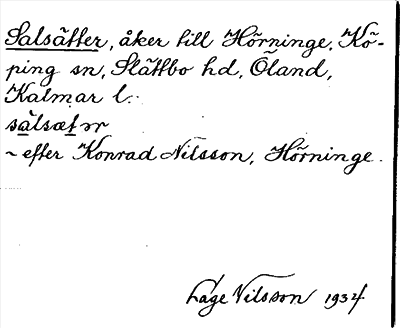 Salsätter, åker till Hörninge, Kö-
ping sn, Slättbo hd, Öland,
Kalmar l.
sạlsætər
~ efter Konrad Nilsson, Hörninge.
Lage Nilsson 1934